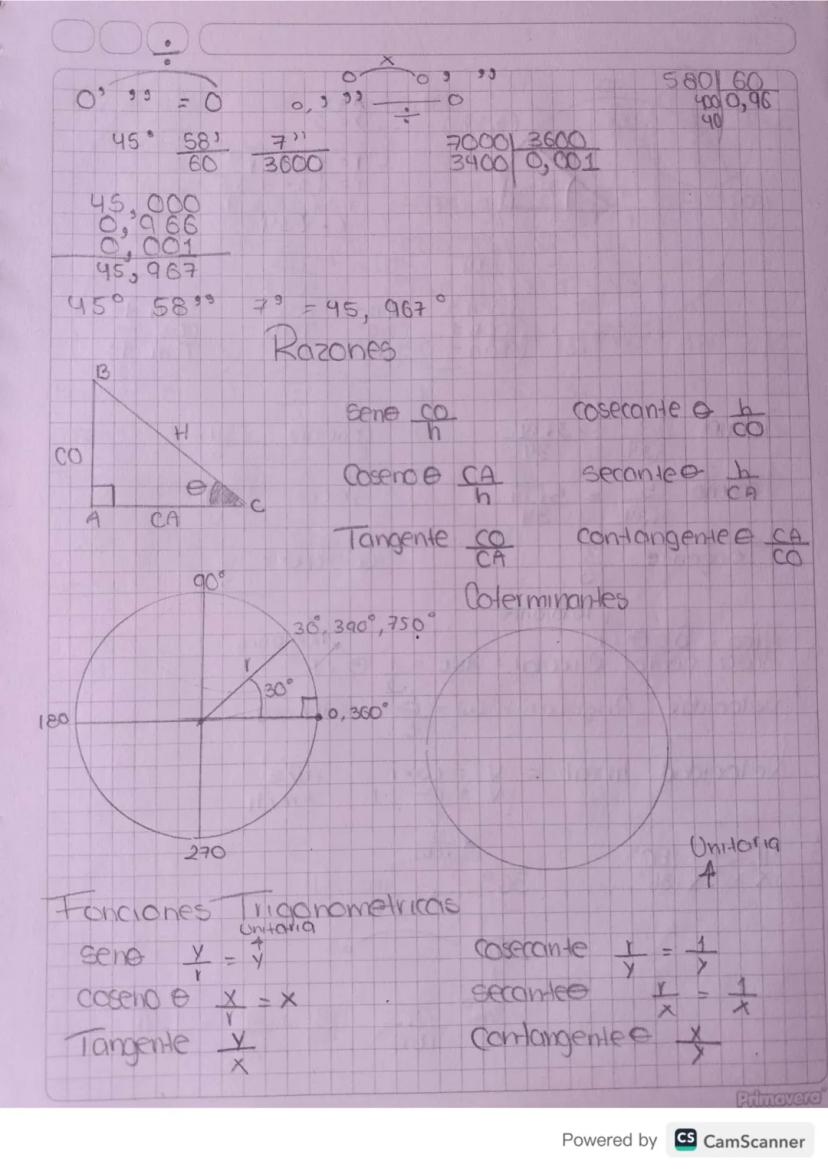 ÷
x
0' '' = 0
0 0, ''
0, '' ÷ 0
580 | 60
400 | 0,96
40
45° 58'/60 7''/3600
7000 | 3600
3400 | 0,001
45,000
0,966
0,001
45,967
45° 58'' 7' = 45, 967°
Razones
B
H
CO
θ
A CA C
Seno CO/h cosecante θ h/CO
Coseno θ CA/h secante θ h/CA
Tangente CO/CA contangente θ CA/CO
90°
Coterminantes
30°, 390°, 750°
r
30°
180
0, 360°
270
Unitaria
↑
Fonciones Trigonometricas
Unitaria
↑
seno y/r = y
cosecante r/y = 1/y
coseno θ x/r = x
secante θ r/x = 1/x
Tangente y/x
contangente θ x/y
Primavera
Powered by CS CamScanner